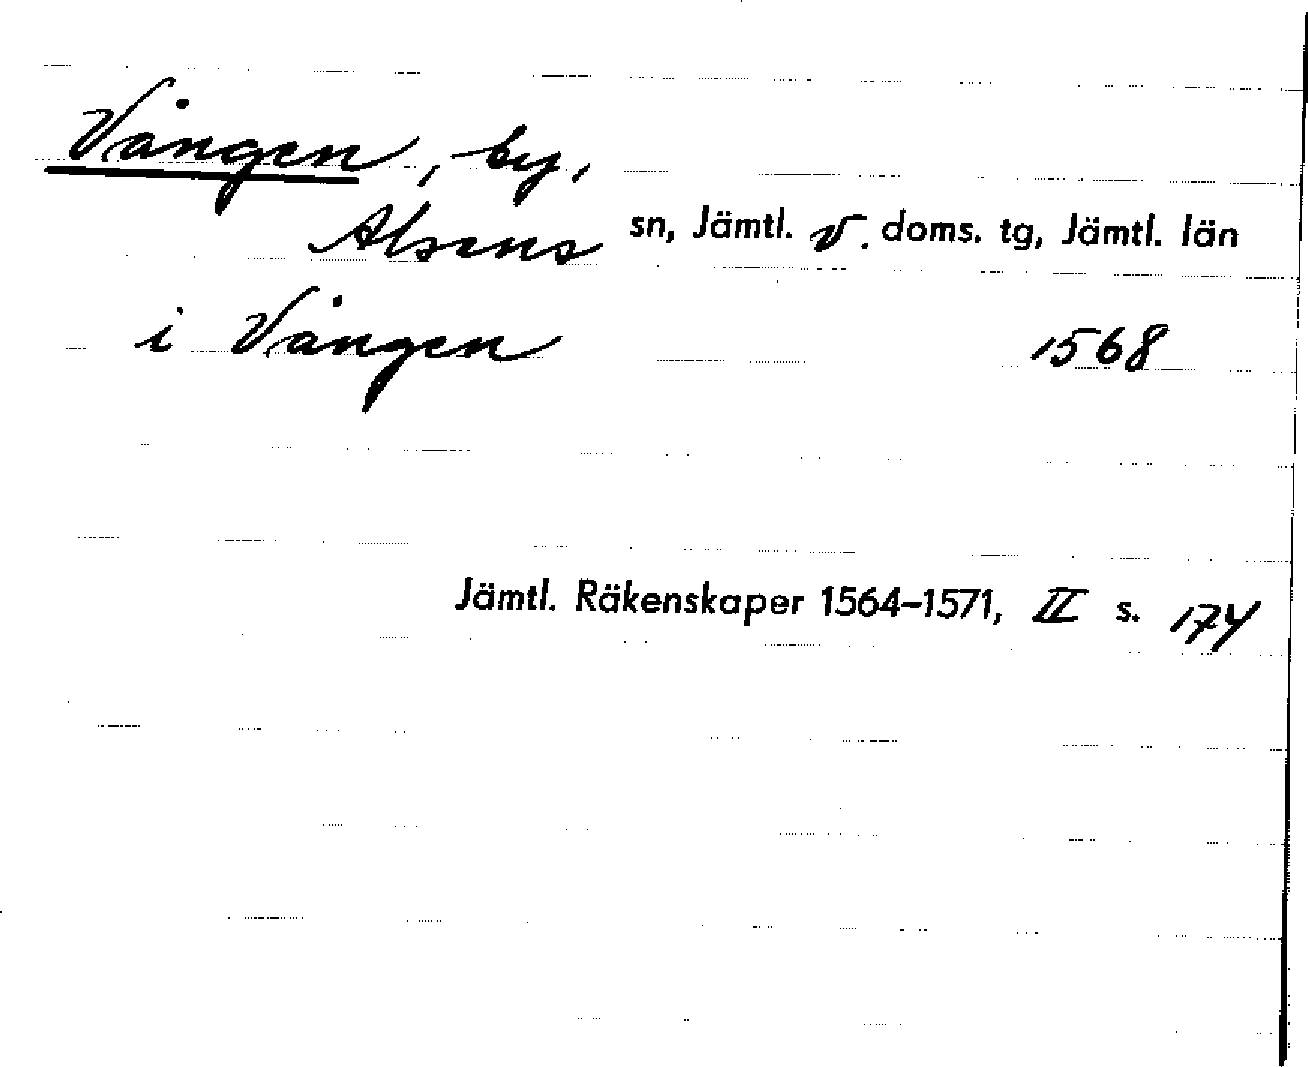 Vången, by,
Alsens sn, Jämtl. v. doms. tg, Jämtl. län
i Vången 1568
Jämtl. Räkenskaper 1564–1571, II s. 174